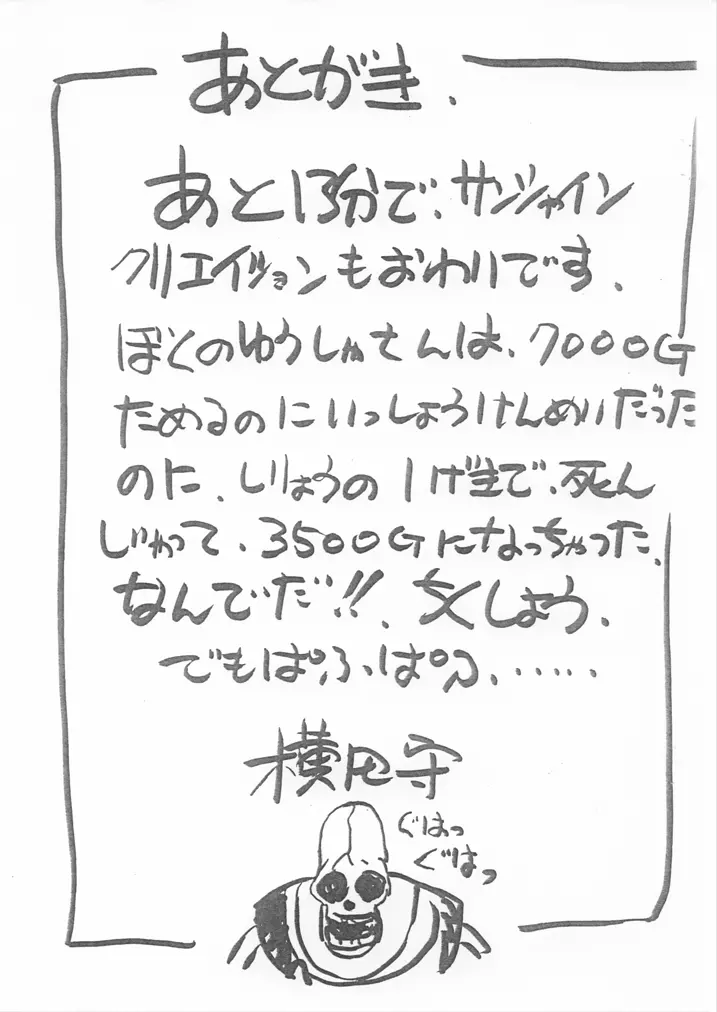 あとがき.
あと13分で、サンシャイン
クリエイションもおわりです.
ぼくのゆうしゃさんは、7000G
ためるのにいっしょうけんめいだった
のに、しりょうの1げきで、死ん
じゃって、3500Gになっちゃった.
なんでだ!!、ちくしょう.
でもぱふぱふ、……
横田守
ぐはっ
ぐはっ